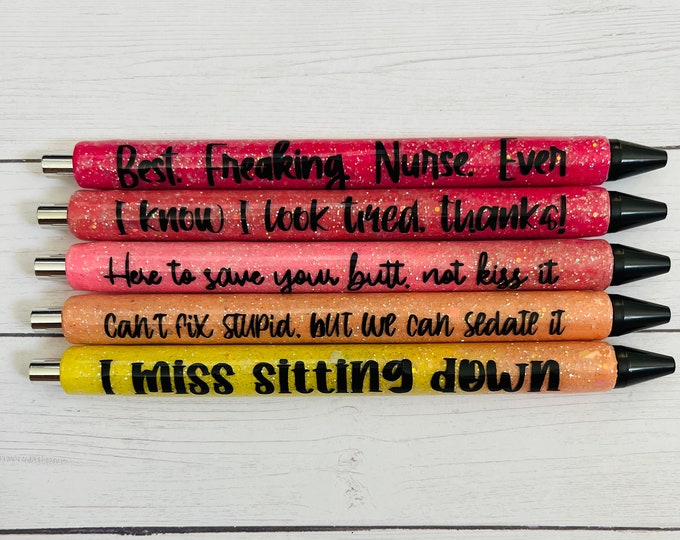 Best. Freaking. Nurse. Ever
I know I look tired, thanks!
Here to save your butt, not kiss it
Can't fix stupid, but we can sedate it
I miss sitting down